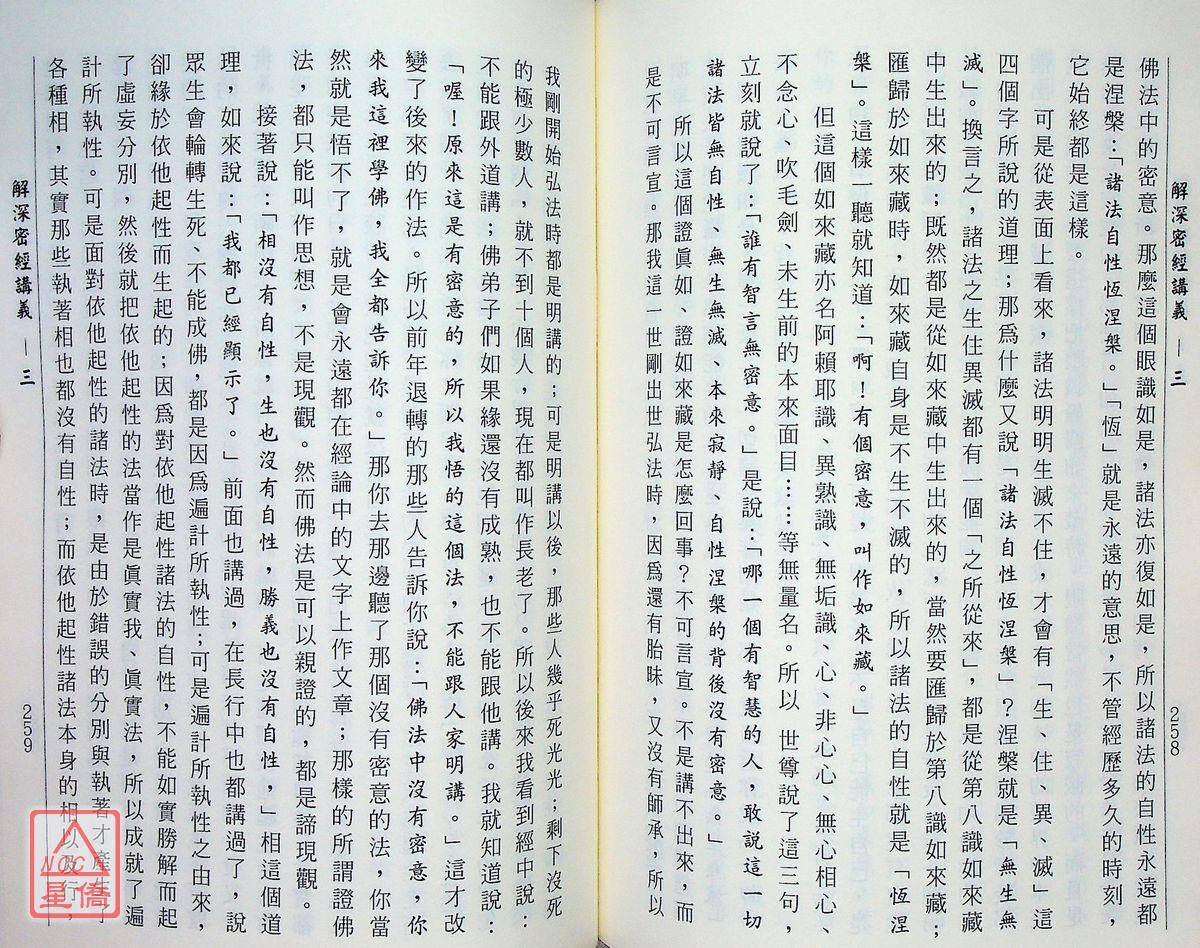 解深密經講義 — 三
258
佛法中的密意。那麼這個眼識如是，諸法亦復如是，所以諸法的自性永遠都
是涅槃：「諸法自性恆涅槃。」「恆」就是永遠的意思，不管經歷多久的時刻，
它始終都是這樣。
可是從表面上看來，諸法明明生滅不住，才會有「生、住、異、滅」這
四個字所說的道理；那爲什麼又說「諸法自性恆涅槃」？涅槃就是「無生無
滅」。換言之，諸法之生住異滅都有一個「之所從來」，都是從第八識如來藏
中生出來的；既然都是從如來藏中生出來的，當然要匯歸於第八識如來藏；
匯歸於如來藏時，如來藏自身是不生不滅的，所以諸法的自性就是「恆涅
槃」。這樣一聽就知道：「啊！有個密意，叫作如來藏。」
但這個如來藏亦名阿賴耶識、異熟識、無垢識、心、非心心、無心相心、
不念心、吹毛劍、未生前的本來面目……等無量名。所以 世尊說了這三句，
立刻就說了：「誰有智言無密意。」是說：「哪一個有智慧的人，敢說這一切
諸法皆無自性、無生無滅、本來寂靜、自性涅槃的背後沒有密意。」
所以這個證眞如、證如來藏是怎麼回事？不可言宣。不是講不出來，而
是不可言宣。那我這一世剛出世弘法時，因爲還有胎昧，又沒有師承，所以
我剛開始弘法時都是明講的；可是明講以後，那些人幾乎死光光；剩下沒死
的極少數人，就不到十個人，現在都叫作長老了。所以後來我看到經中說：
不能跟外道講；佛弟子們如果緣還沒有成熟，也不能跟他講。我就知道說：
「喔！原來這是有密意的，所以我悟的這個法，不能跟人家明講。」這才改
變了後來的作法。所以前年退轉的那些人告訴你說：「佛法中沒有密意，你
來我這裡學佛，我全都告訴你。」那你去那邊聽了那個沒有密意的法，你當
然就是悟不了，就是會永遠都在經論中的文字上作文章；那樣的所謂證佛
法，都只能叫作思想，不是現觀。然而佛法是可以親證的，都是諦現觀。
接著說：「相沒有自性，生也沒有自性，勝義也沒有自性，」相這個道
理，如來說：「我都已經顯示了。」前面也講過，在長行中也都講過了，說
眾生會輪轉生死、不能成佛，都是因爲遍計所執性；可是遍計所執性之由來，
卻緣於依他起性而生起的；因爲對依他起性諸法的自性，不能如實勝解而起
了虛妄分別，然後就把依他起性的法當作是眞實我、眞實法，所以成就了遍
計所執性。可是面對依他起性的諸法時，是由於錯誤的分別與執著才產生了
各種相，其實那些執著相也都沒有自性；而依他起性諸法本身的相以及行，
解深密經講義 — 三
259
NCC
星僑